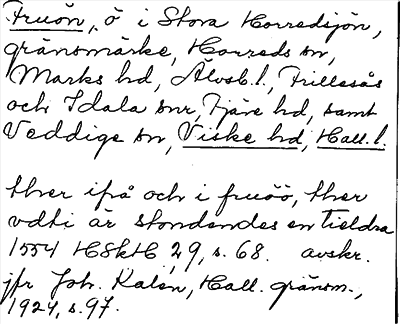 Fruön, ö i Stora Horredsjön,
gränsmärke, Horreds sn,
Marks hd, Älvsb. l., Frillesås
och Idala snr, Fjäre hd, samt
Veddige sn, Viske hd, Hall. l.
thær ifrå och i fruöö, thær
vdti är stondendes en tieldra
1554 HSkH 29, s. 68. avskr.
jfr Joh. Kalén, Hall. gränsm.,
1924, s. 97.